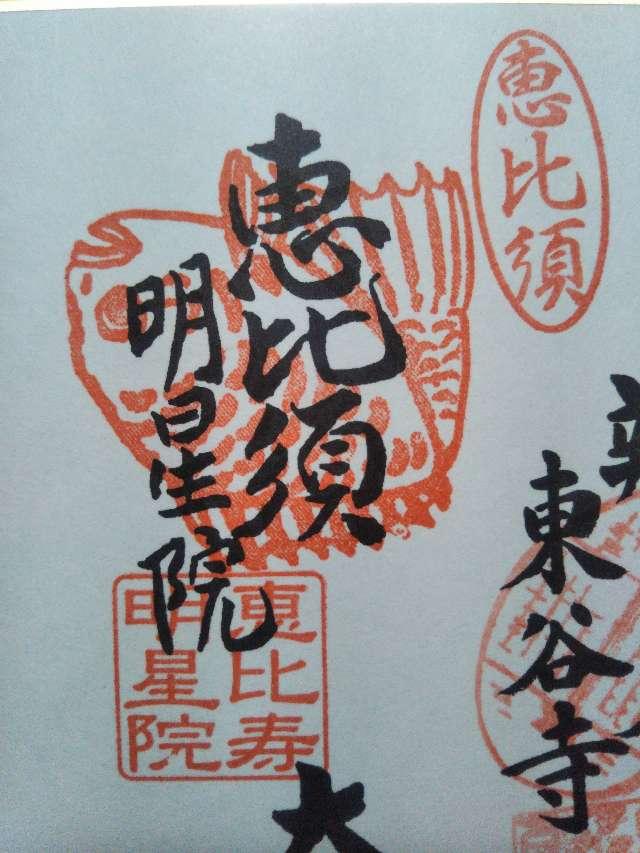 恵比須
東谷寺
恵比須
明星院
恵比寿
明星院
大